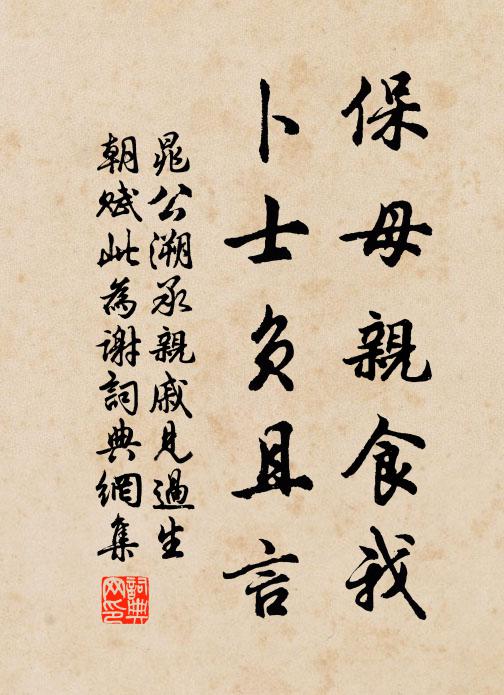 保母親食我
卜士負且言
晁公溯承親戚見過生
朝賦此為謝詞典網集
詞典
网印